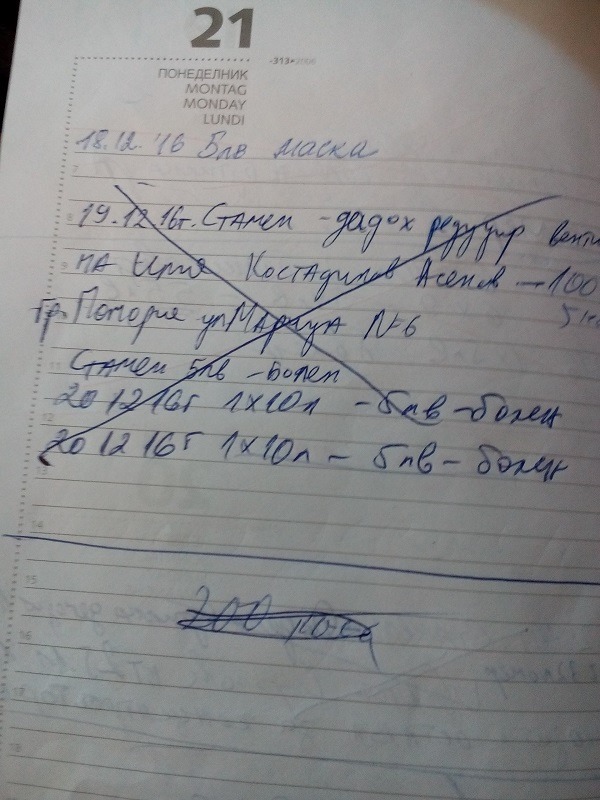 21
-313•
ПОНЕДЕЛНИК
MONTAG
MONDAY
LUNDI
18.12.'16 5лв маска
7
8
19.12.16г. Стамен - дадох редуцир венти
9
на Илия Костадинов Асенов - 100
гр. Поморя ул Марица №6
11
Стамен 5лв - болен
12
20 12 16г 1x10л - 5лв - болен
20 12 16г 1x10л - 5лв - болен
13
14
15
200
16
17
18